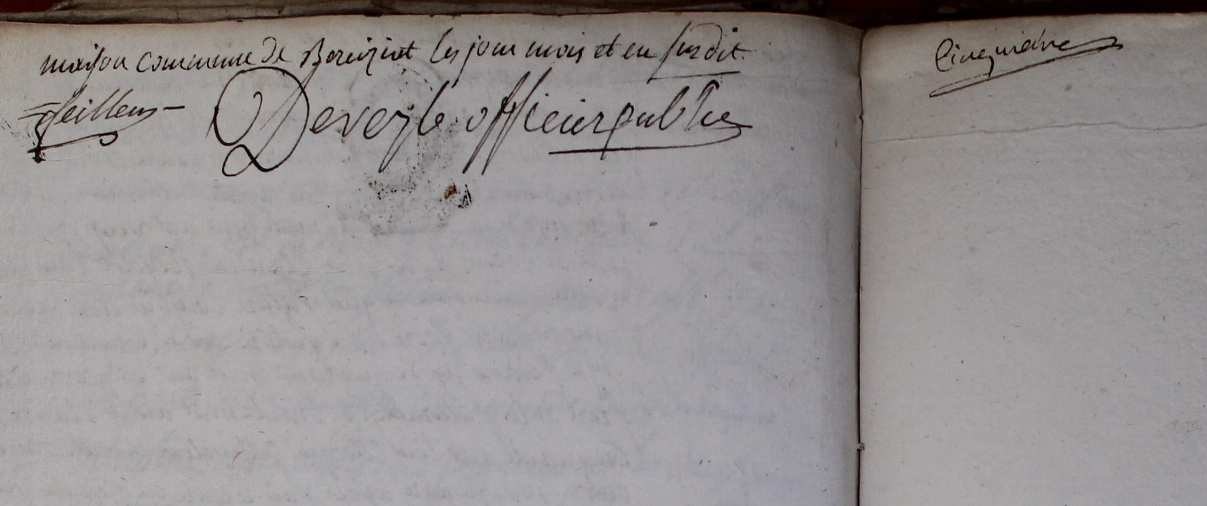 maison commune de Bereiziat les jour mois et en susdit
feillens Deveyle officier public
Cinquième